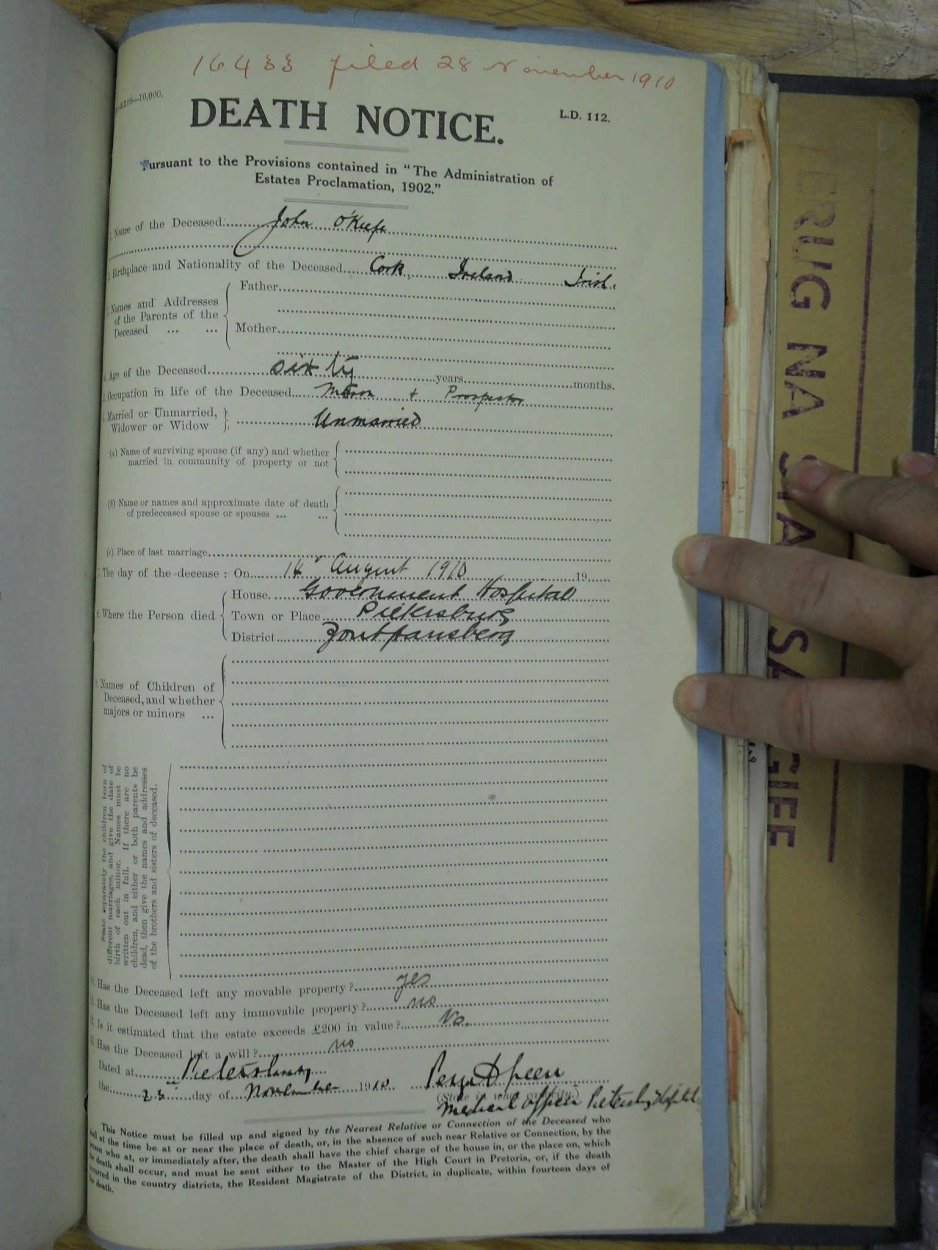 16433 filed 28 November 1910
DEATH NOTICE.
L.D. 112.
Pursuant to the Provisions contained in "The Administration of
Estates Proclamation, 1902."
Name of the Deceased John O'Keefe
Birthplace and Nationality of the Deceased Cork Ireland Irish
Names and Addresses
of the Parents of the
Deceased ... ...
Father
Mother
Age of the Deceased sixty years months.
Occupation in life of the Deceased & Prospector
Married or Unmarried,
Widower or Widow
Unmarried
(a) Name of surviving spouse (if any) and whether
married in community of property or not
(b) Name or names and approximate date of death
of predeceased spouse or spouses ... ...
(c) Place of last marriage
The day of the decease : On 14th August 1910 19
Where the Person died
House. Government Hospital
Town or Place Pietersburg
District Zoutpansberg
Names of Children of
Deceased, and whether
majors or minors ...
State separately the children born of
different marriages, and give the date of
birth of each minor. Names must be
written out in full. If there are no
children, and either or both parents be
dead, then give the names and addresses
of the brothers and sisters of deceased.
Has the Deceased left any movable property? yes
Has the Deceased left any immovable property? no
Is it estimated that the estate exceeds £200 in value? No.
Has the Deceased left a will? no
Dated at Pietersburg
the 23rd day of November 1910
Medical Officer Pietersburg
This Notice must be filled up and signed by the Nearest Relative or Connection of the Deceased who
shall at the time be at or near the place of death, or, in the absence of such near Relative or Connection, by the
person who at, or immediately after, the death shall have the chief charge of the house in, or the place on, which
the death shall occur, and must be sent either to the Master of the High Court in Pretoria, or, if the death
occurred in the country districts, the Resident Magistrate of the District, in duplicate, within fourteen days of
the death.
TERUG NA